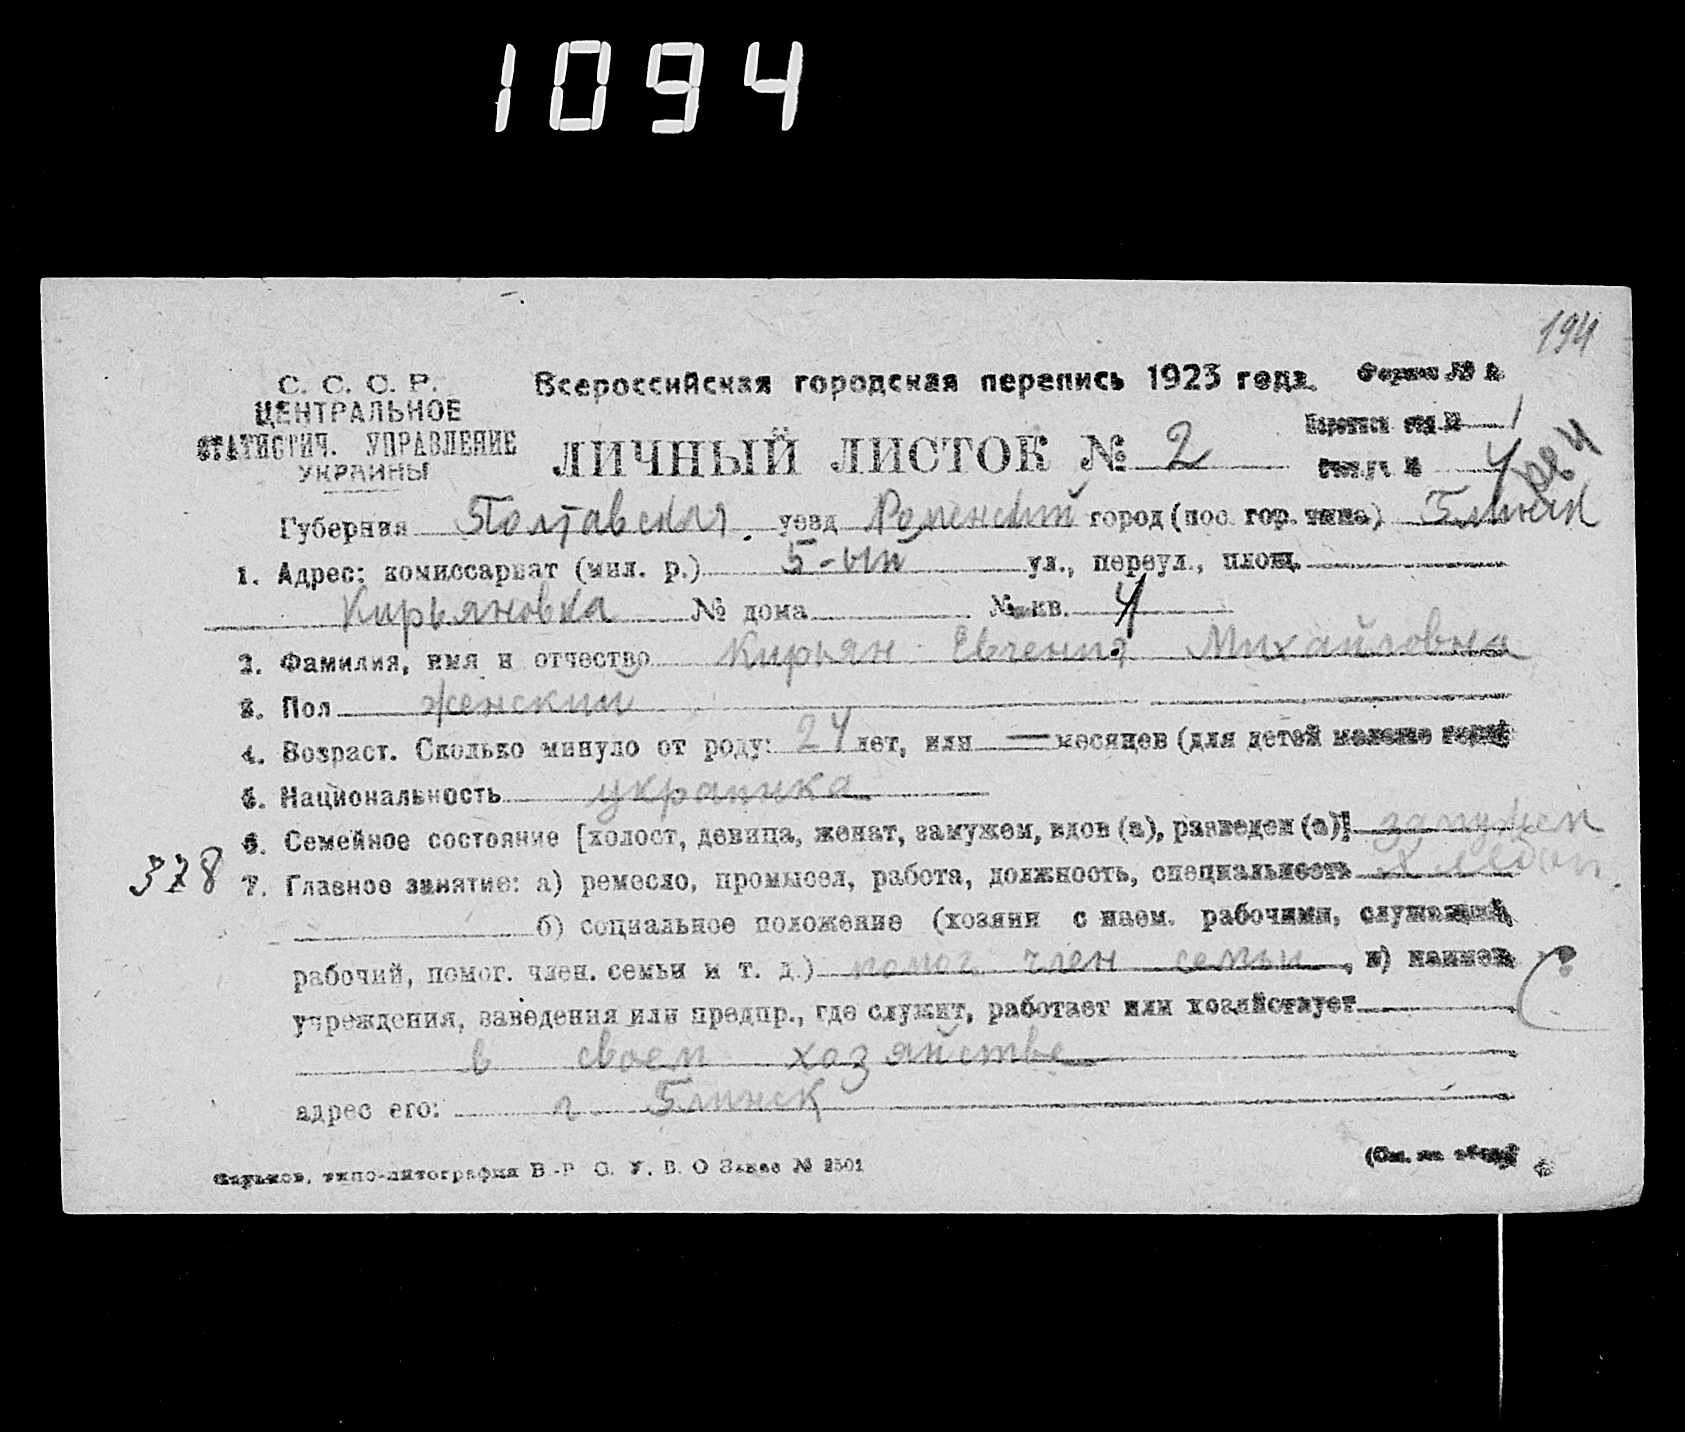 1094
194
С. С. С. Р.
ЦЕНТРАЛЬНОЕ
СТАТИСТИЧ. УПРАВЛЕНИЕ
УКРАИНЫ
Всероссийская городская перепись 1923 года.
ЛИЧНЫЙ ЛИСТОК № 2
1
4
Губерния Полтавская уезд Роменский город (пос. гор. типа) Глинск
1. Адрес: комиссариат (мил. р.) 5-ый ул., переул., площ.
Кирьяновка № дома № кв. 4
2. Фамилия, имя и отчество Кирьян Евгения Михайловна
3. Пол женский
4. Возраст. Сколько минуло от роду: 24 лет, или — месяцев (для детей моложе года)
5. Национальность украинка
6. Семейное состояние [холост, девица, женат, замужем, вдов (а), разведен (а)] замужем
378 7. Главное занятие: а) ремесло, промысел, работа, должность, специальность хлебоп.
б) социальное положение (хозяин с наем. рабочими, служащий,
рабочий, помог. член. семьи и т. д.) помог. член семьи, в) наимен.
учреждения, заведения или предпр., где служит, работает или хозяйствует
в своем хозяйстве
адрес его: г. Глинск
Харьков, типо-литография В.-Р. С. У. В. О Заказ № 2501